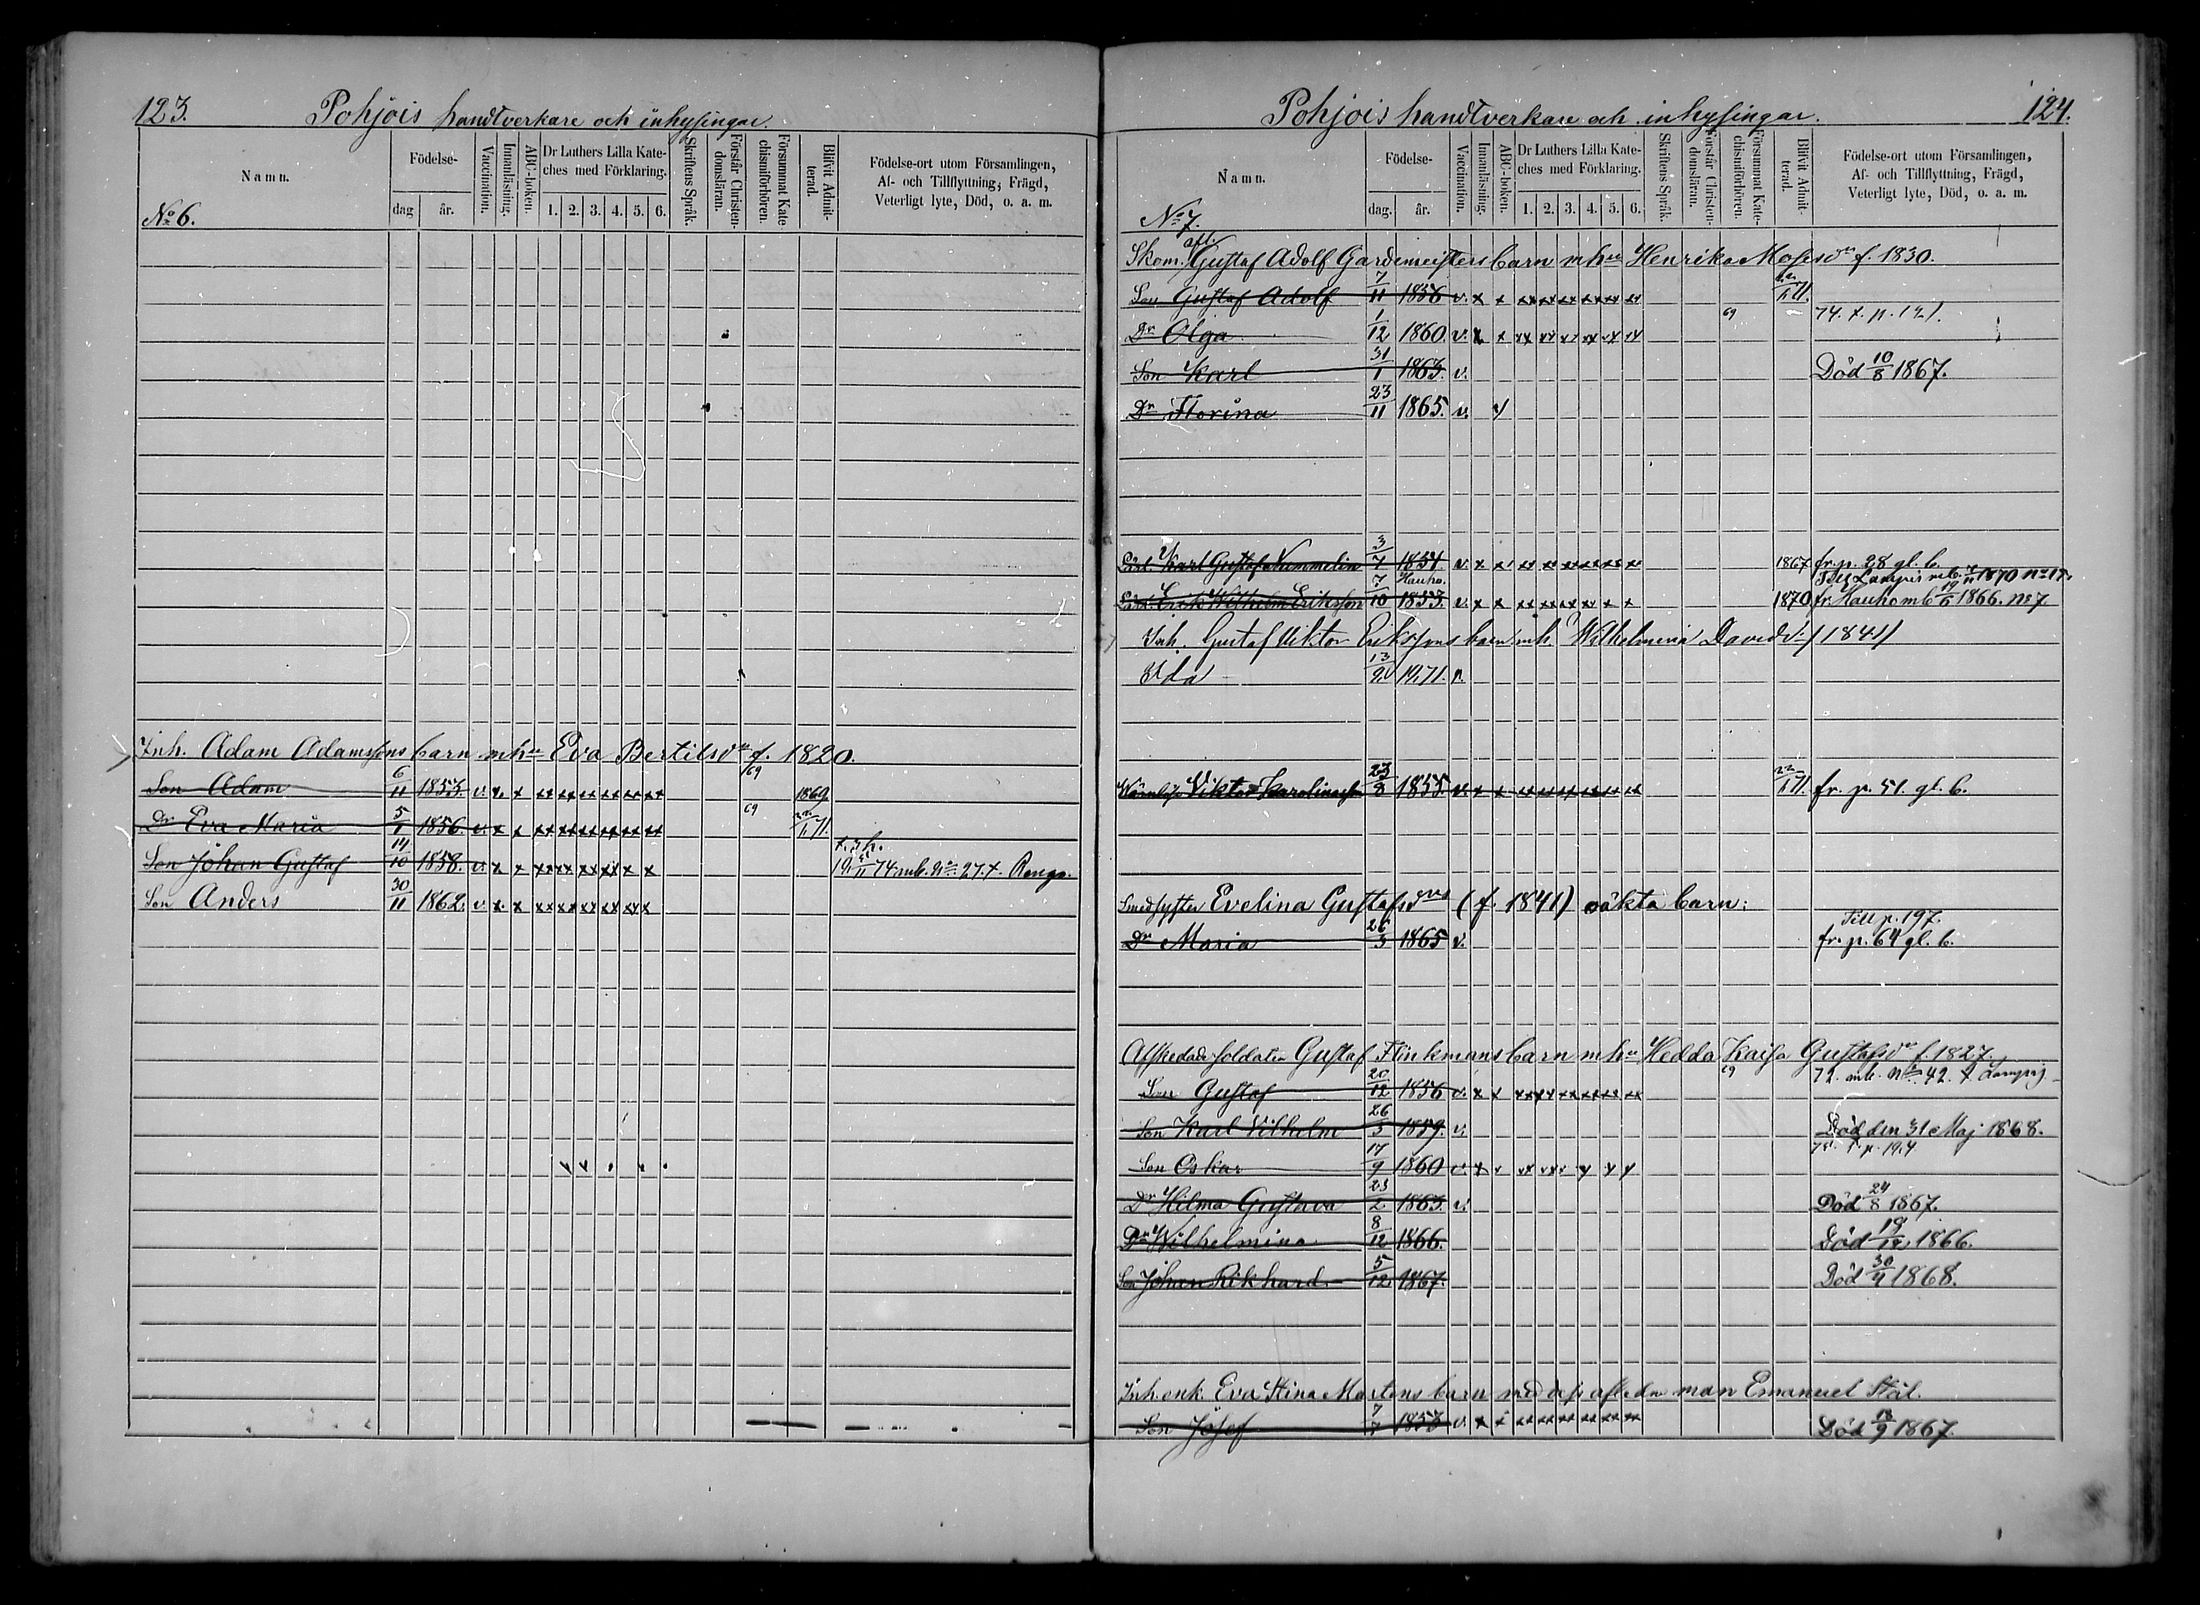 123. Pohjois handtverkare och inhysingar.
Namn.
Födelse-
dag
år.
Vaccination.
Innanläsning.
ABC-boken.
Dr Luthers Lilla Kate-
ches med Förklaring.
1. 2. 3. 4. 5. 6.
Skriftens Språk.
Förstår Christen-
domsläran.
Försummat Kate
chismiförhören.
Blifvit Admit-
terad.
Födelse-ort utom Församlingen,
Af- och Tillflyttning, Frägd,
Veterligt lyte, Död, o. a. m.
No 6.
Inh. Adam Adamssons barn m hu Eva Bertilsdr f. 1820.
Son Adam 6/11 1853. v. x x xx xx xx xx xx xx 69 1869.
Dr Eva Maria 5/1 1856. v. x x xx xx xx xx xx xx 69 22/1 71.
Son Johan Gustaf 14/10 1858. v. x x xx xx xx xx x x
Son Anders 30/11 1862. v. x x xx xx xx xx xx x
Pohjois handtverkare och inhysingar. 124.
Namn.
Födelse-
dag.
år.
Vaccination.
Innanläsning.
ABC-boken.
Dr Luthers Lilla Kate-
ches med Förklaring.
1. 2. 3. 4. 5. 6.
Skriftens Språk.
Förstår Christen-
domsläran.
Försummat Kate-
chismiförhören.
Blifvit Admit-
terad.
Födelse-ort utom Församlingen,
Af- och Tillflyttning, Frägd,
Veterligt lyte, Död, o. a. m.
No 7.
Skom. afl. Gustaf Adolf Gardemeisters barn m hu Henrika Mosisdr f. 1830.
Son Gustaf Adolf 7/11 1856 v. x x xx xx xx xx xx xx
Dr Olga 1/12 1860. v. x x xx xx xx xx xx xx 69 74. t. p. 121.
Son Karl 31/1 1863. v. Död 10/8 1867.
Dr Florina 23/11 1865. v.
Lärl. Karl Gustaf Nummelin 3/7 1854 v. x x xx xx xx xx xx xx 1867 fr. p. 28 gl. b.
Till Lampis mb. 1870 No 17.
Lärl. Erik Wilhelm Eriksson 7/10 1853. Hauho. v. x x xx xx xx xx x x 1870 fr. Hauho mb 19/6 1866. No 7.
Inh. Gustaf Viktor Erikssons barn m h. Wilhelmina Davidsd. (1841)
Ida 13/9 1871. v.
Viktor Karolinason 23/8 1855. v. x x xx xx xx xx xx xx 22/1 71. fr. p. 51. gl. b.
Smedsyster Evelina Gustafsdrs (f. 1841) oäkta barn:
Till p. 197.
Dr Maria 26/3 1865 v. fr. p. 64 gl. b.
Afskedade soldaten Gustaf Flinkmans barn m hu Hedda Kaisa Gustafsdr f. 1827.
Son Gustaf 20/12 1856 v. x x xx xx xx xx xx xx 69 72. mb. No 42. t Lampis
Son Karl Vilhelm 26/3 1859. v. Död den 31 Maj 1868.
Son Oskar 17/9 1860 v. x
Dr Hilma Gustava 23/2 1863. v. Död 24/8 1867.
Dr Wilhelmina 8/12 1866. Död 19/12 1866.
Son Johan Rikhard 5/12 1867. Död 30/4 1868.
Inh. enk. Eva Stina Mortens barn med dess afledne man Emanuel Stål.
Son Josef 7/7 1853 v. x x xx xx xx xx xx xx Död 13/9 1867.